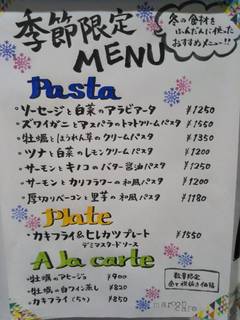 季節限定
MENU
冬の食材を
ふんだんに使った
おすすめメニュー!!
Pasta
・ソーセージと白菜のアラビアータ ¥1250
・ズワイガニとアスパラのトマトクリームパスタ ¥1550
・牡蠣とほうれん草のクリームパスタ ¥1350
・ツナと白菜のレモンクリームパスタ ¥1200
・サーモンとキノコのバター醤油パスタ ¥1250
・サーモンとカリフラワーの和風パスタ ¥1200
・厚切りベーコンと里芋の和風パスタ ¥1180
Plate
・カキフライ&ヒレカツプレート ¥1550
デミマスタードソース
A la carte
・牡蠣のアヒージョ ¥900
・牡蠣の白ワイン蒸し ¥820
・カキフライ(5ヶ) ¥850
数量限定
全て税抜き価格
maron
cafe